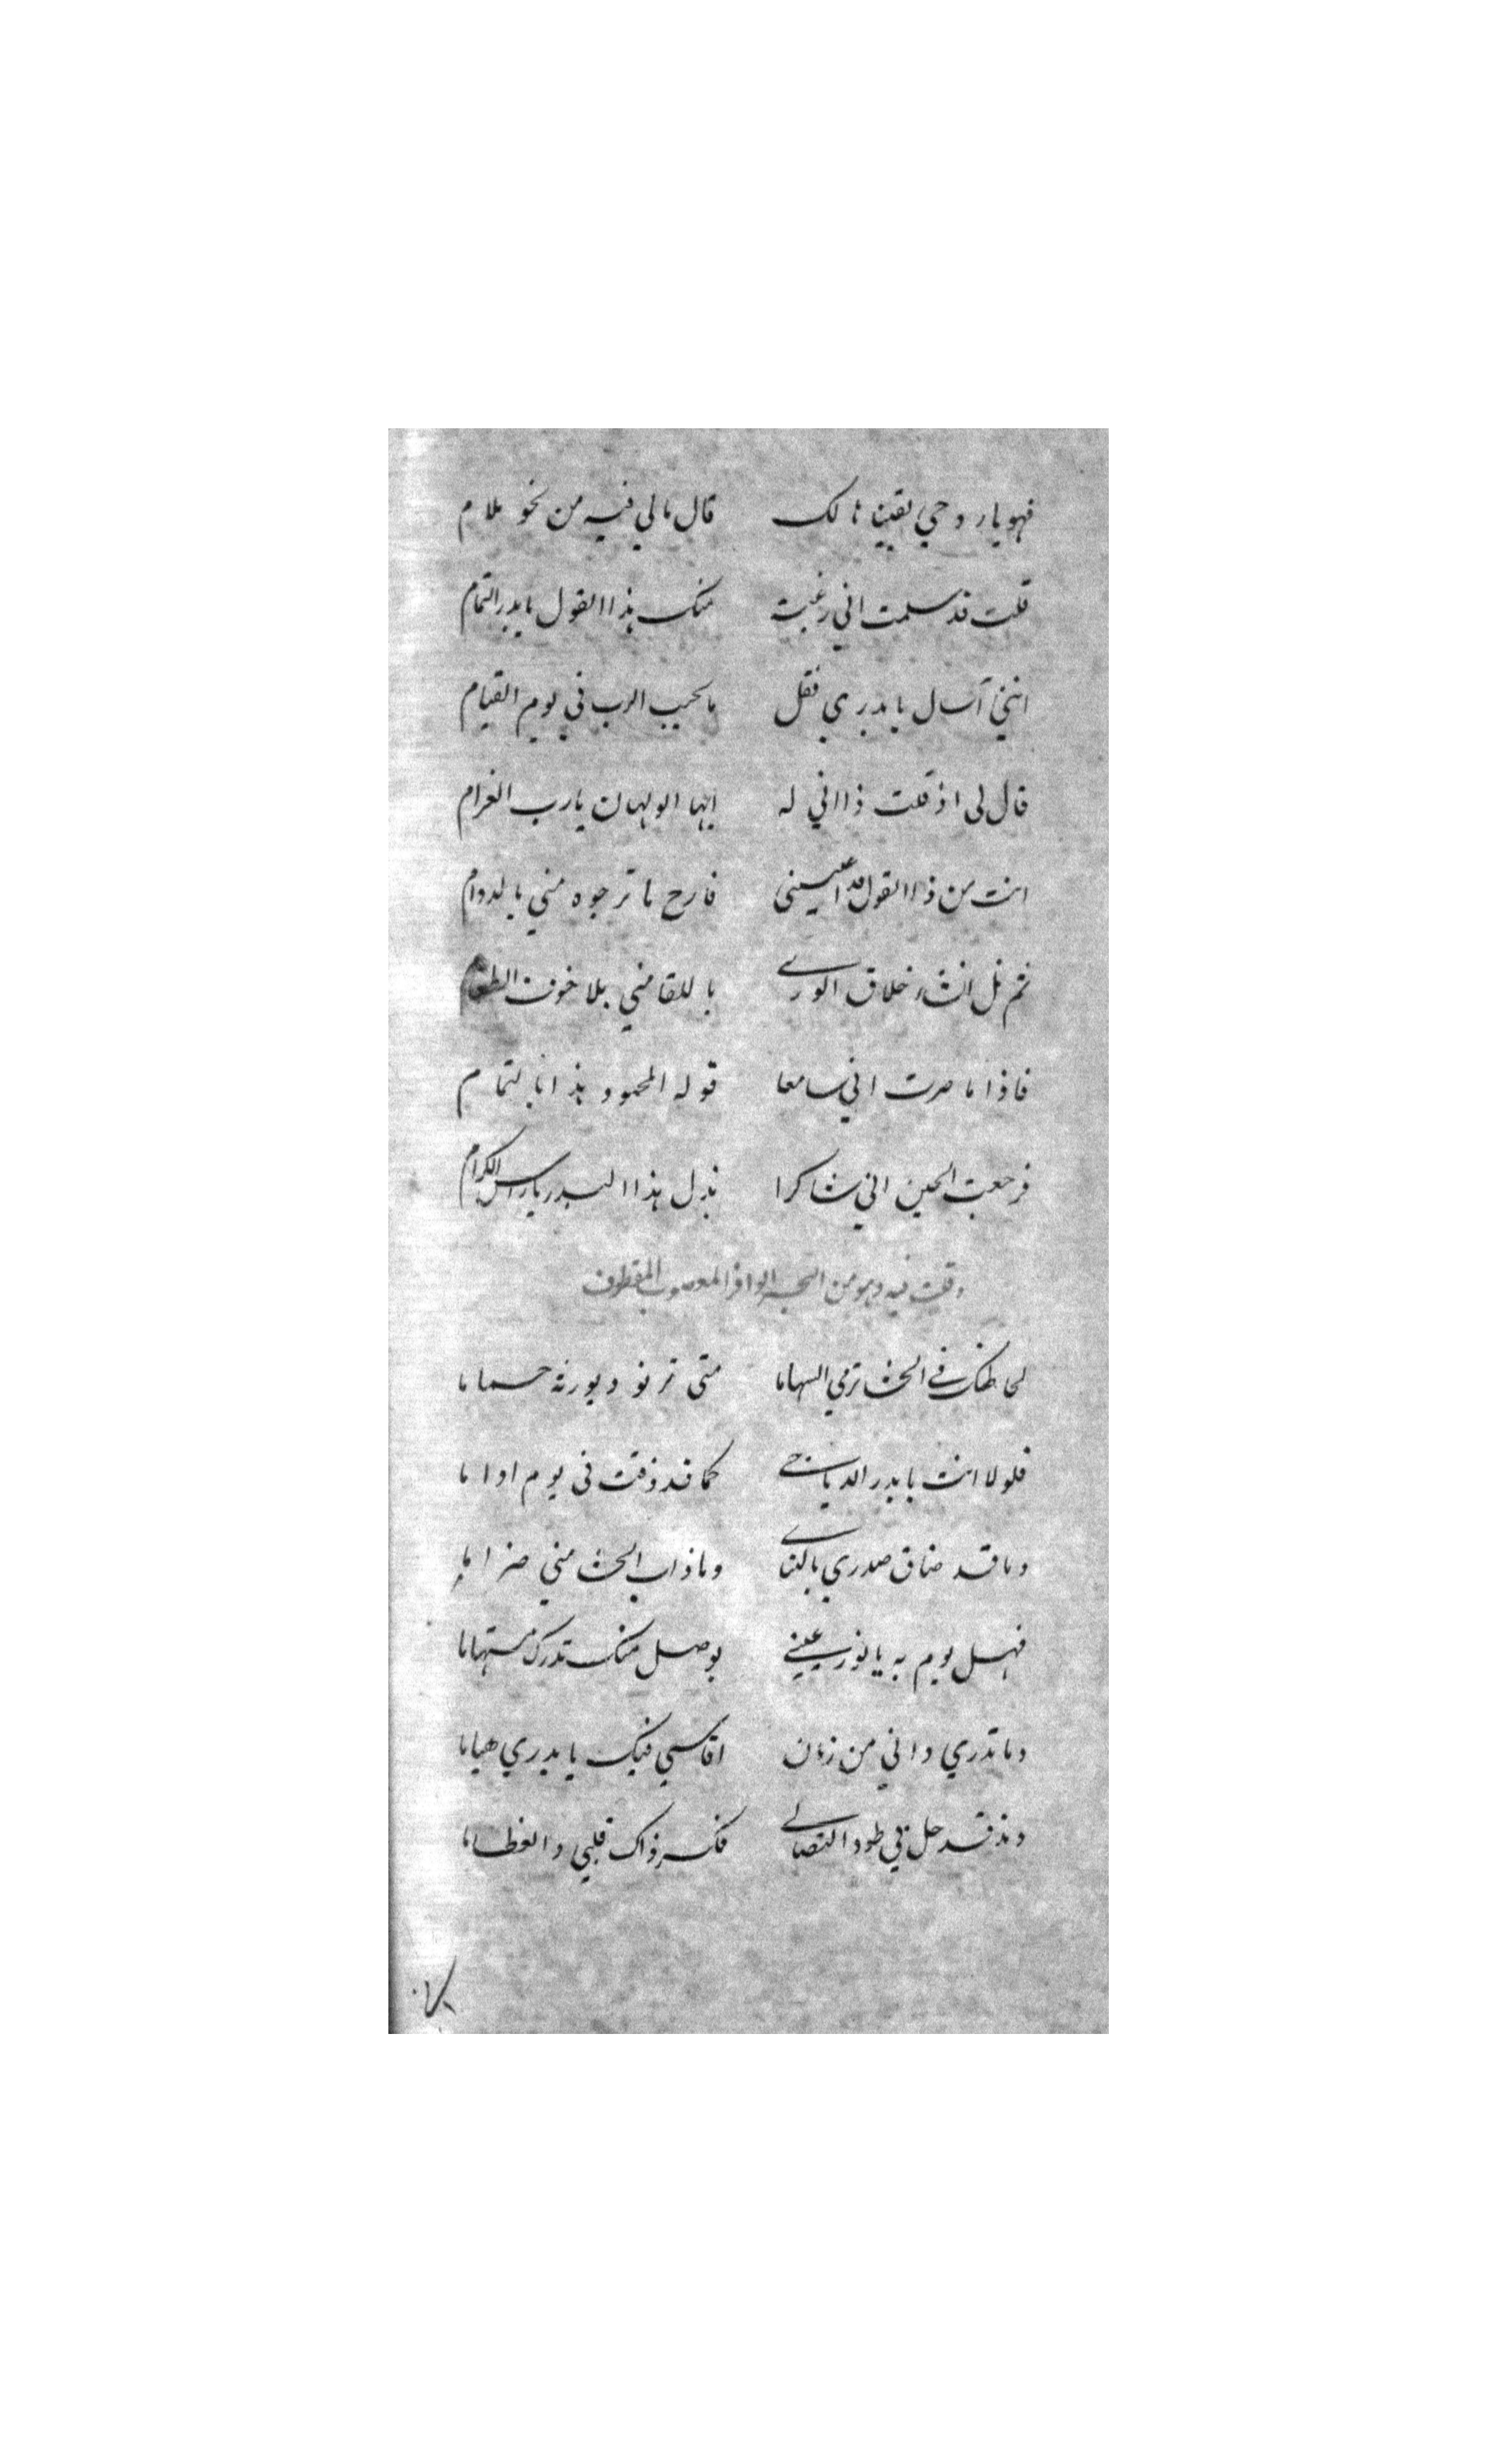 فهو يا روحي يقينا هالك قال مالي فيه من نحو ملام
قلت قد سلمت اني رغبت منك هذا القول يا بدر التمام
انني آسال يا بدري فقل ما يجيب الرب في يوم القيام
قال لي اذ قلت ذا اني له ايها الولهان يا رب الغرام
انت من ذا القول قد اعييتني فارح ما ترجوه مني بالدوام
ثم نل انت خلاق الورى باللقا مني بلا خوف
فاذا ما صرت اني سامعا قوله المحمود هذا بالتمام
فرجعت الحين اني شاكرا نبذل هذا البدر يا راس الكرام
وقلت فيه وهو من البحر الوافر المعصوب المقطوف
لحاظك في الحشا ترمي السهاما متى ترنو ويورثه حساما
فلولا انت يا بدر الدياجي كما قد ذقت في يوم اواما
وما قد ضاق صدري بالتنائي وما ذاب الحشا مني ضراما
فهل يوم به يا نور عيني بوصل منك تدرك مستهاما
وما تدري واني من زمان اقاسي فيك يا بدري هياما
ومذ قد حل بي طود التصابي فكسر ذاك قلبي والعظاما